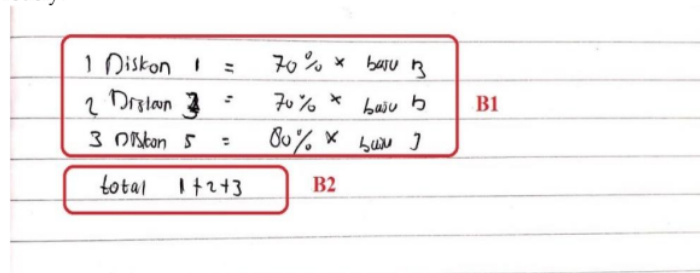 1 Diskon 1 = 70% × baju B
2 Diskon 3 = 70% × baju b
3 Diskon 5 = 80% × baju J
B1
total 1+2+3
B2